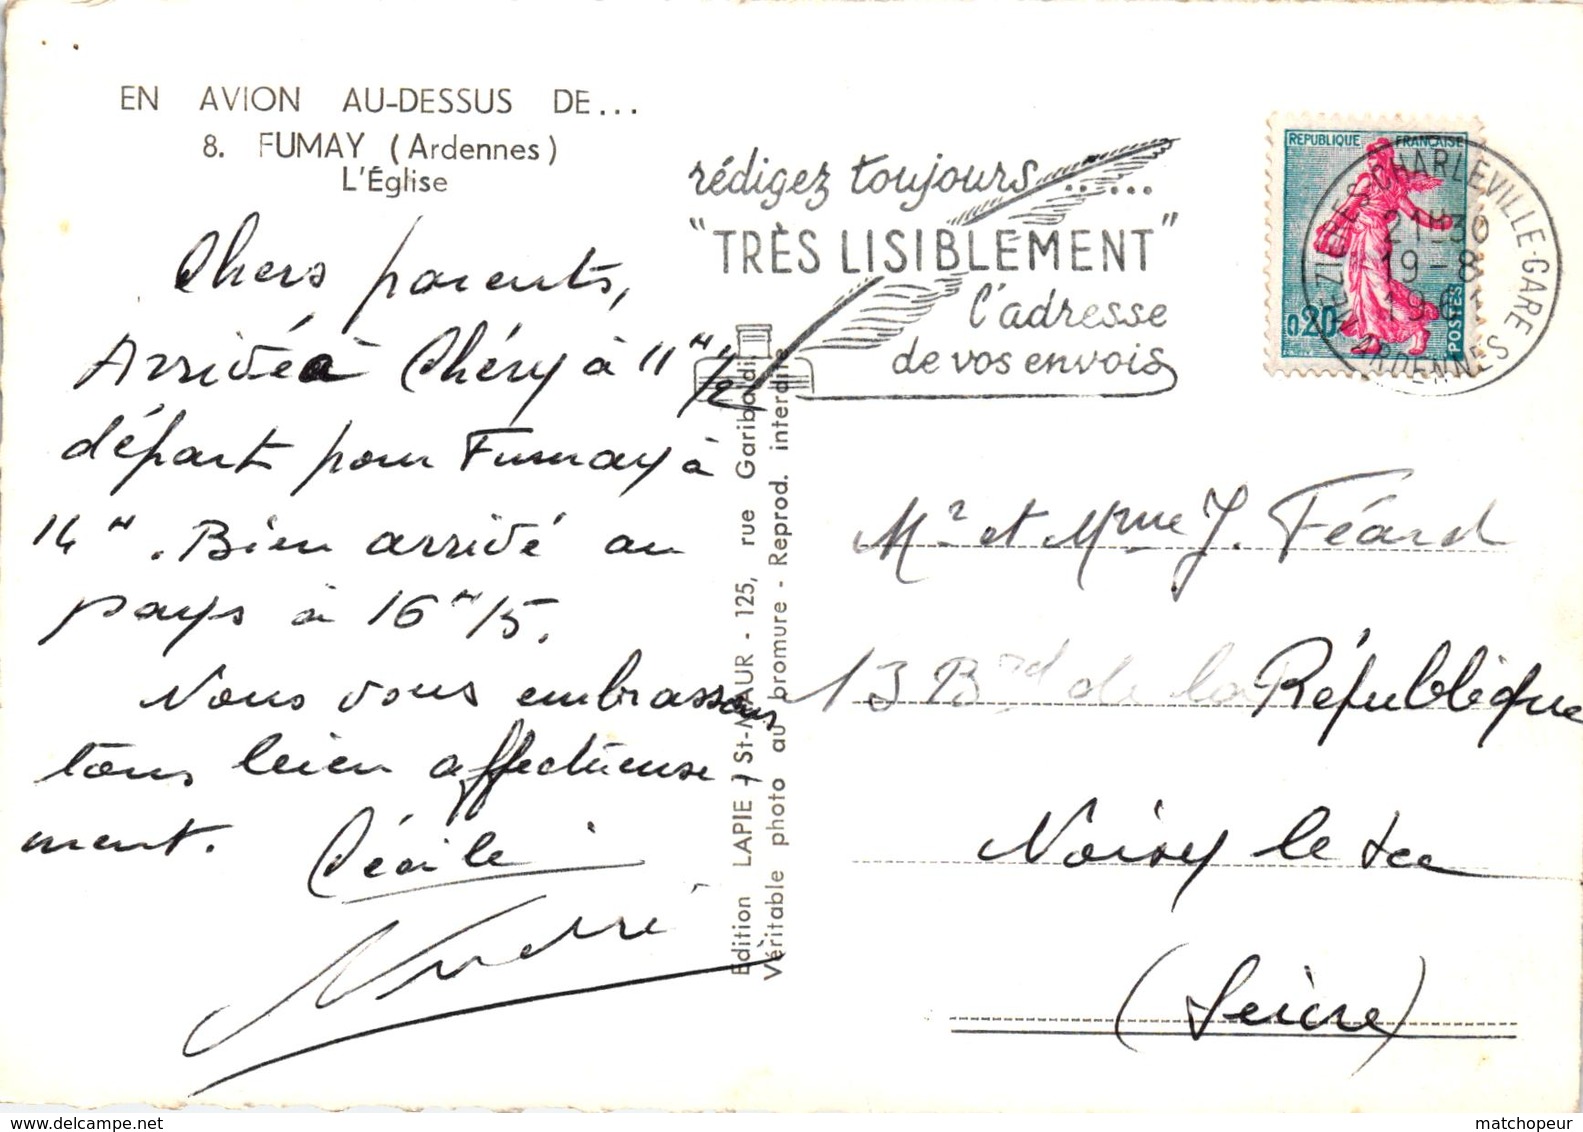 EN AVION AU-DESSUS DE...
8. FUMAY (Ardennes)
L'Église
Chers parents,
Arrivée à Chéry à 11 H 1/2
départ pour Fumay à
14 H. Bien arrivé au
pays à 16 H 15.
Nous vous embrassons
tous bien affectueuse
ment. Cécile
André
Edition LAPIE - St-MAUR - 125, rue Garibaldi
Véritable photo au bromure - Reprod. interdite
rédigez toujours......
"TRÈS LISIBLEMENT"
l'adresse
de vos envois
REPUBLIQUE FRANÇAISE
0,20
POSTES
MEZIERES-CHARLEVILLE-GARE
21H30
19-8
1961
ARDENNES
Mr et Mme J. Féard
13 Brd de la République
Noisy le Sec
(Seine)
matchopeur